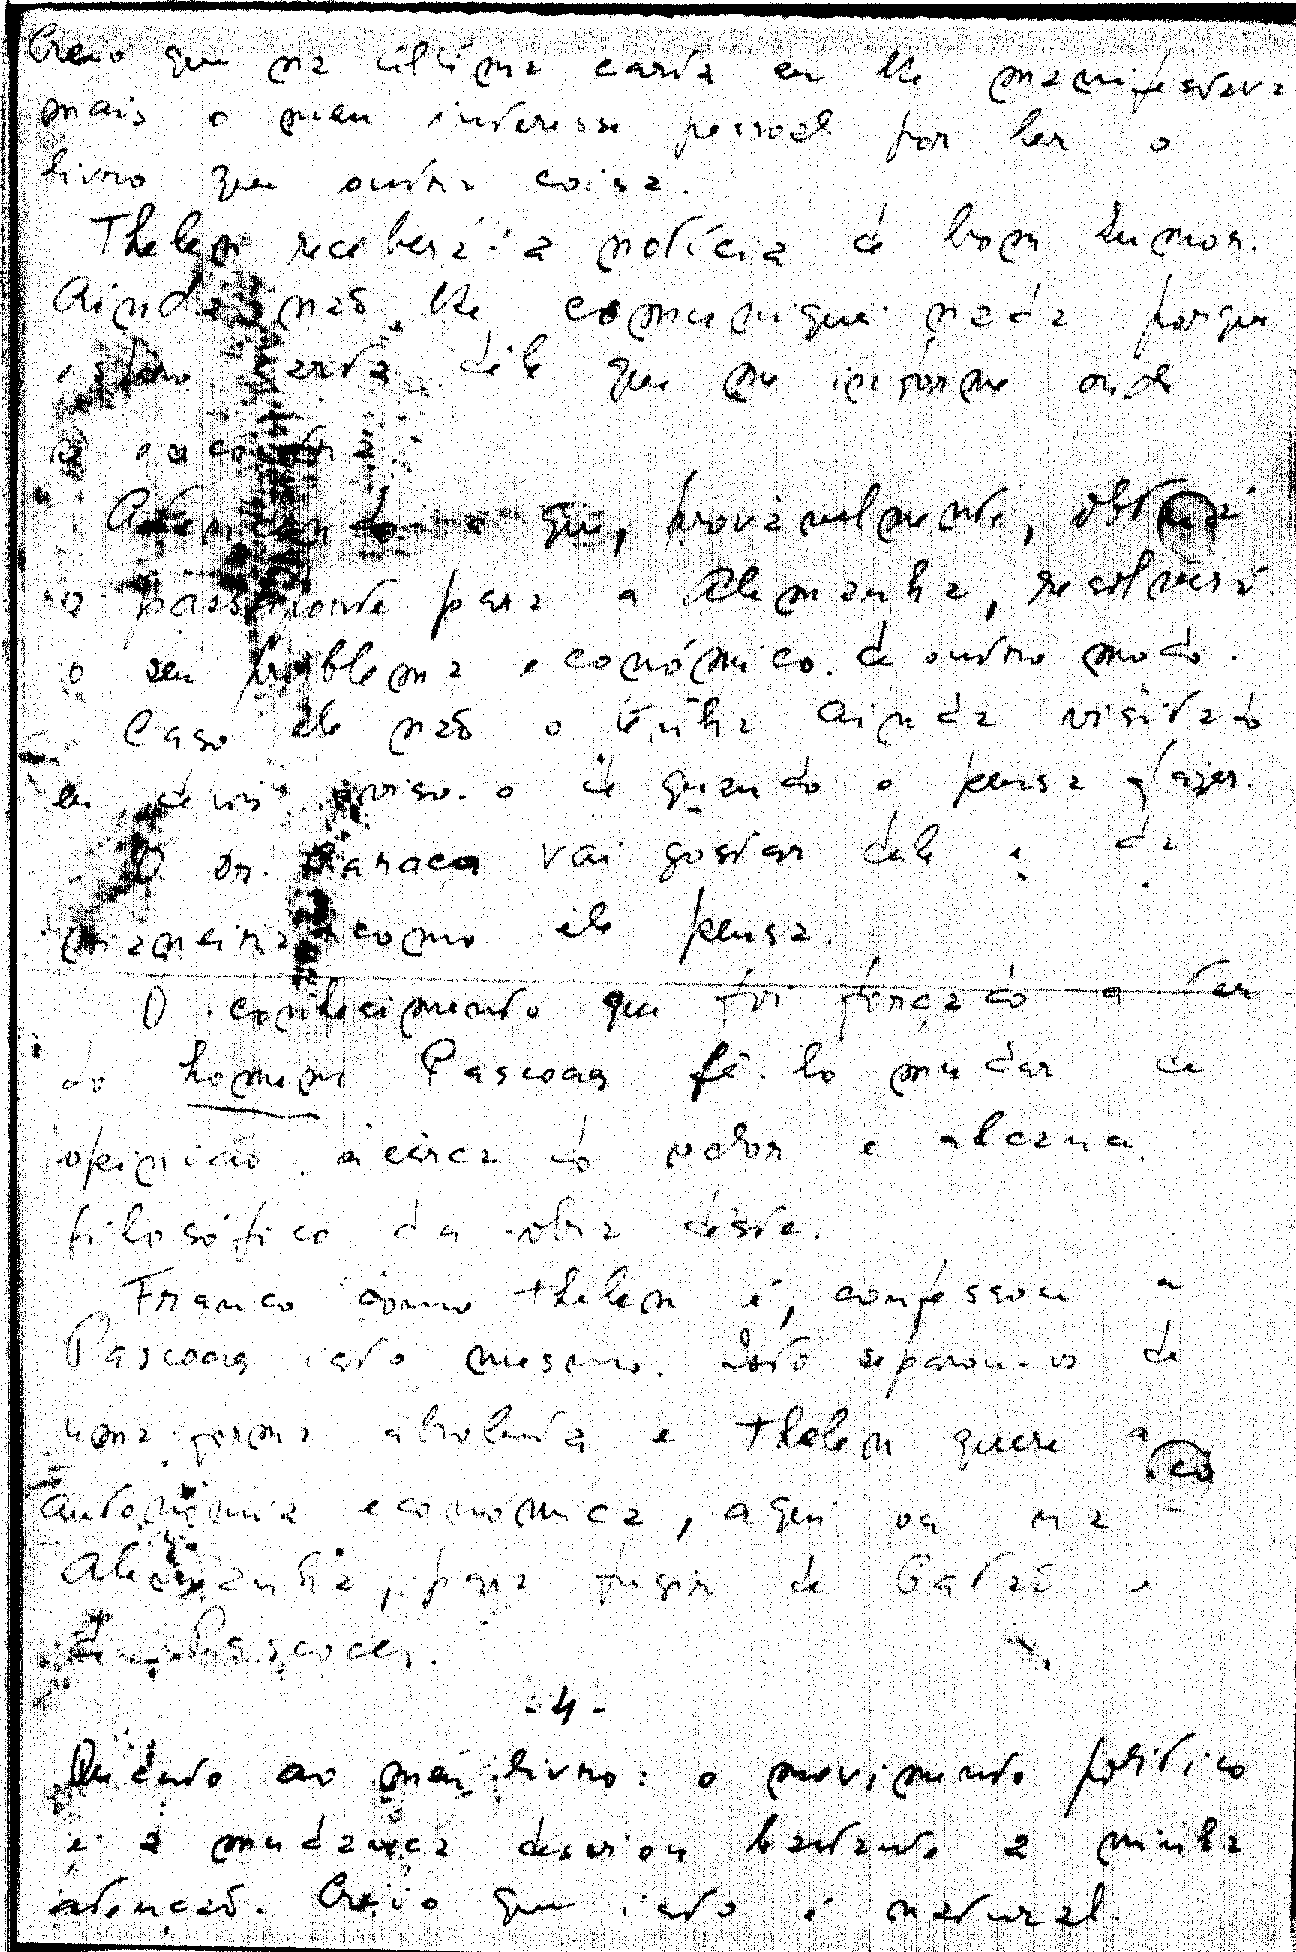 Creio que na última carta eu lhe manifestava
mais o meu interesse pessoal por ler o
livro que outra coisa.
Thelen receberá a notícia de bom humor.
Ainda não lhe comuniquei nada porque
espero carta dêle que me informe onde
se encontra.
que, provàvelmente, obterá
o passaporte para a Alemanha, resolverá
o seu problema económico de outro modo.
Caso êle não o tenha ainda visitado
eu aviso-o de quando o pensa fazer.
O Dr. vai gostar dele e da
maneira como êle pensa.
O conhecimento que foi forçado a ter
do homem Pascoaes fê-lo mudar de
opinião àcêrca do valor e alcance
filosófico da obra dêste.
Franco como Thelen é, confessou a
Pascoaes isto mesmo. Isto separou-os de
uma forma absoluta e Thelen quere a sua
autonomia económica, aqui ou na
Alemanha, para fugir de Gatão e
de Pascoaes.
- 4 -
Quanto ao meu livro: o movimento político
e a mudança desviou bastante a minha
atenção. Creio que isto é natural.